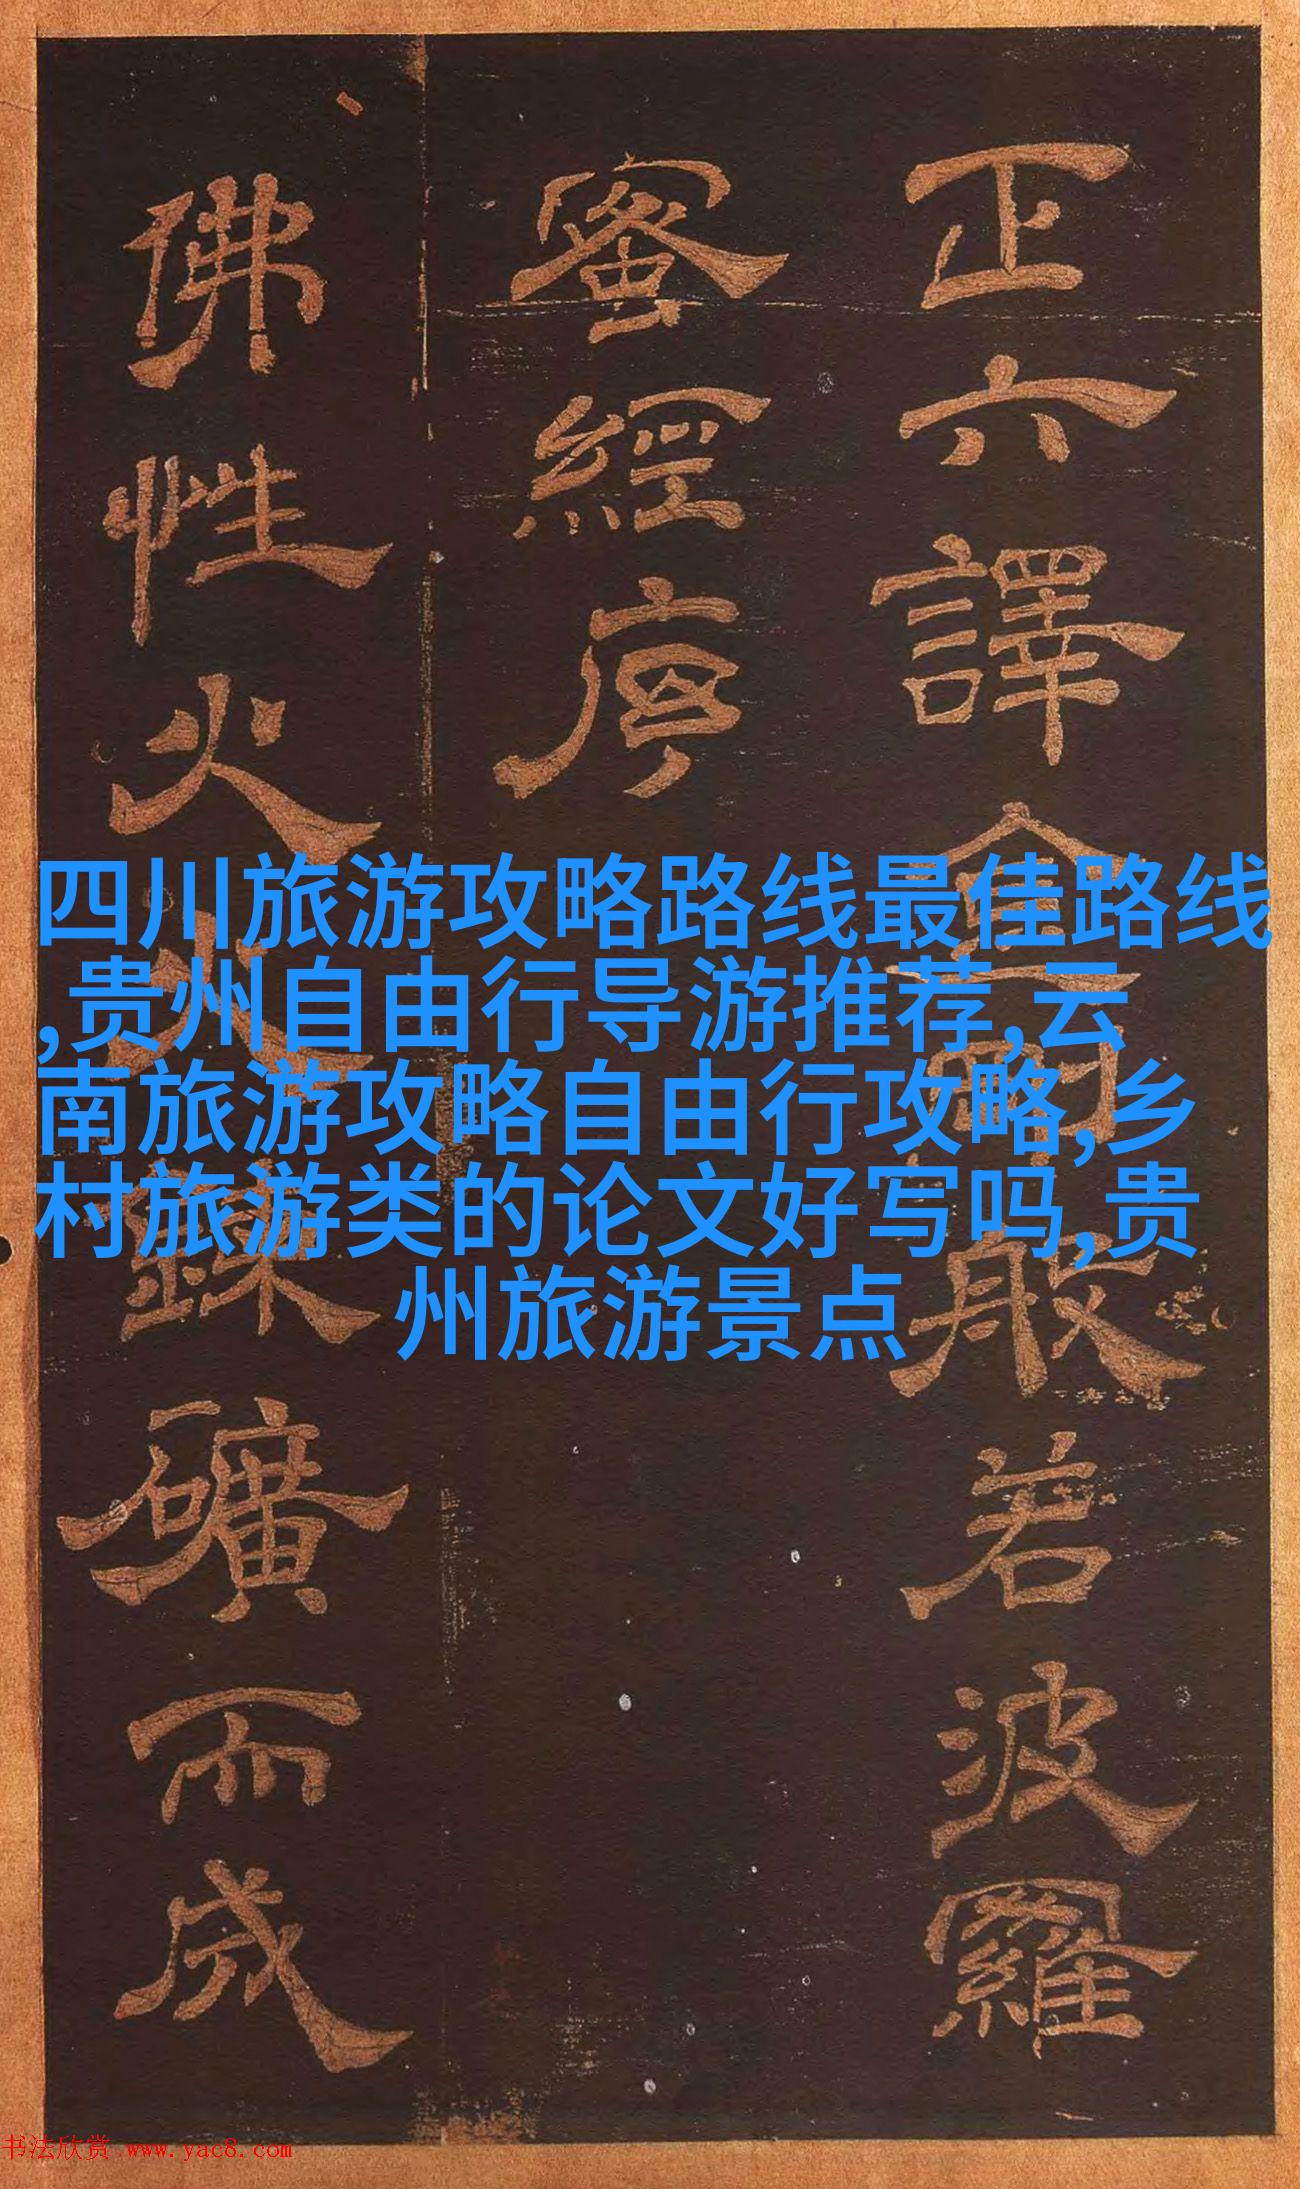 正六譯金剛般若波羅
蜜經序
佛性火
礦而成
四川旅游攻略路线最佳路线
,贵州自由行导游推荐,云
南旅游攻略自由行攻略,乡
村旅游类的论文好写吗,贵
州旅游景点
书法欣赏 www.yac8.com